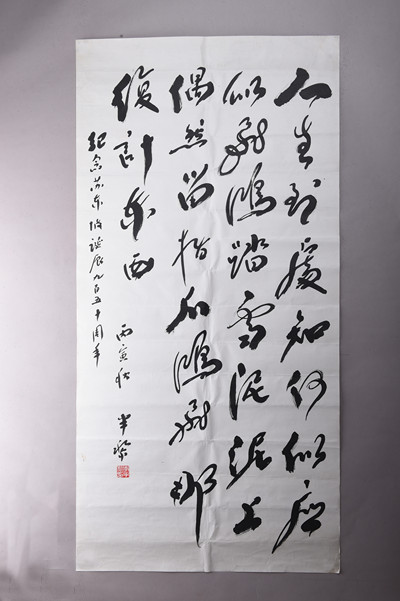 人生到處知何似應
似飛鴻踏雪泥泥上
偶然留指爪鴻飛那
復計东西
丙寅秋 半黎
纪念苏东坡诞辰九百五十周年